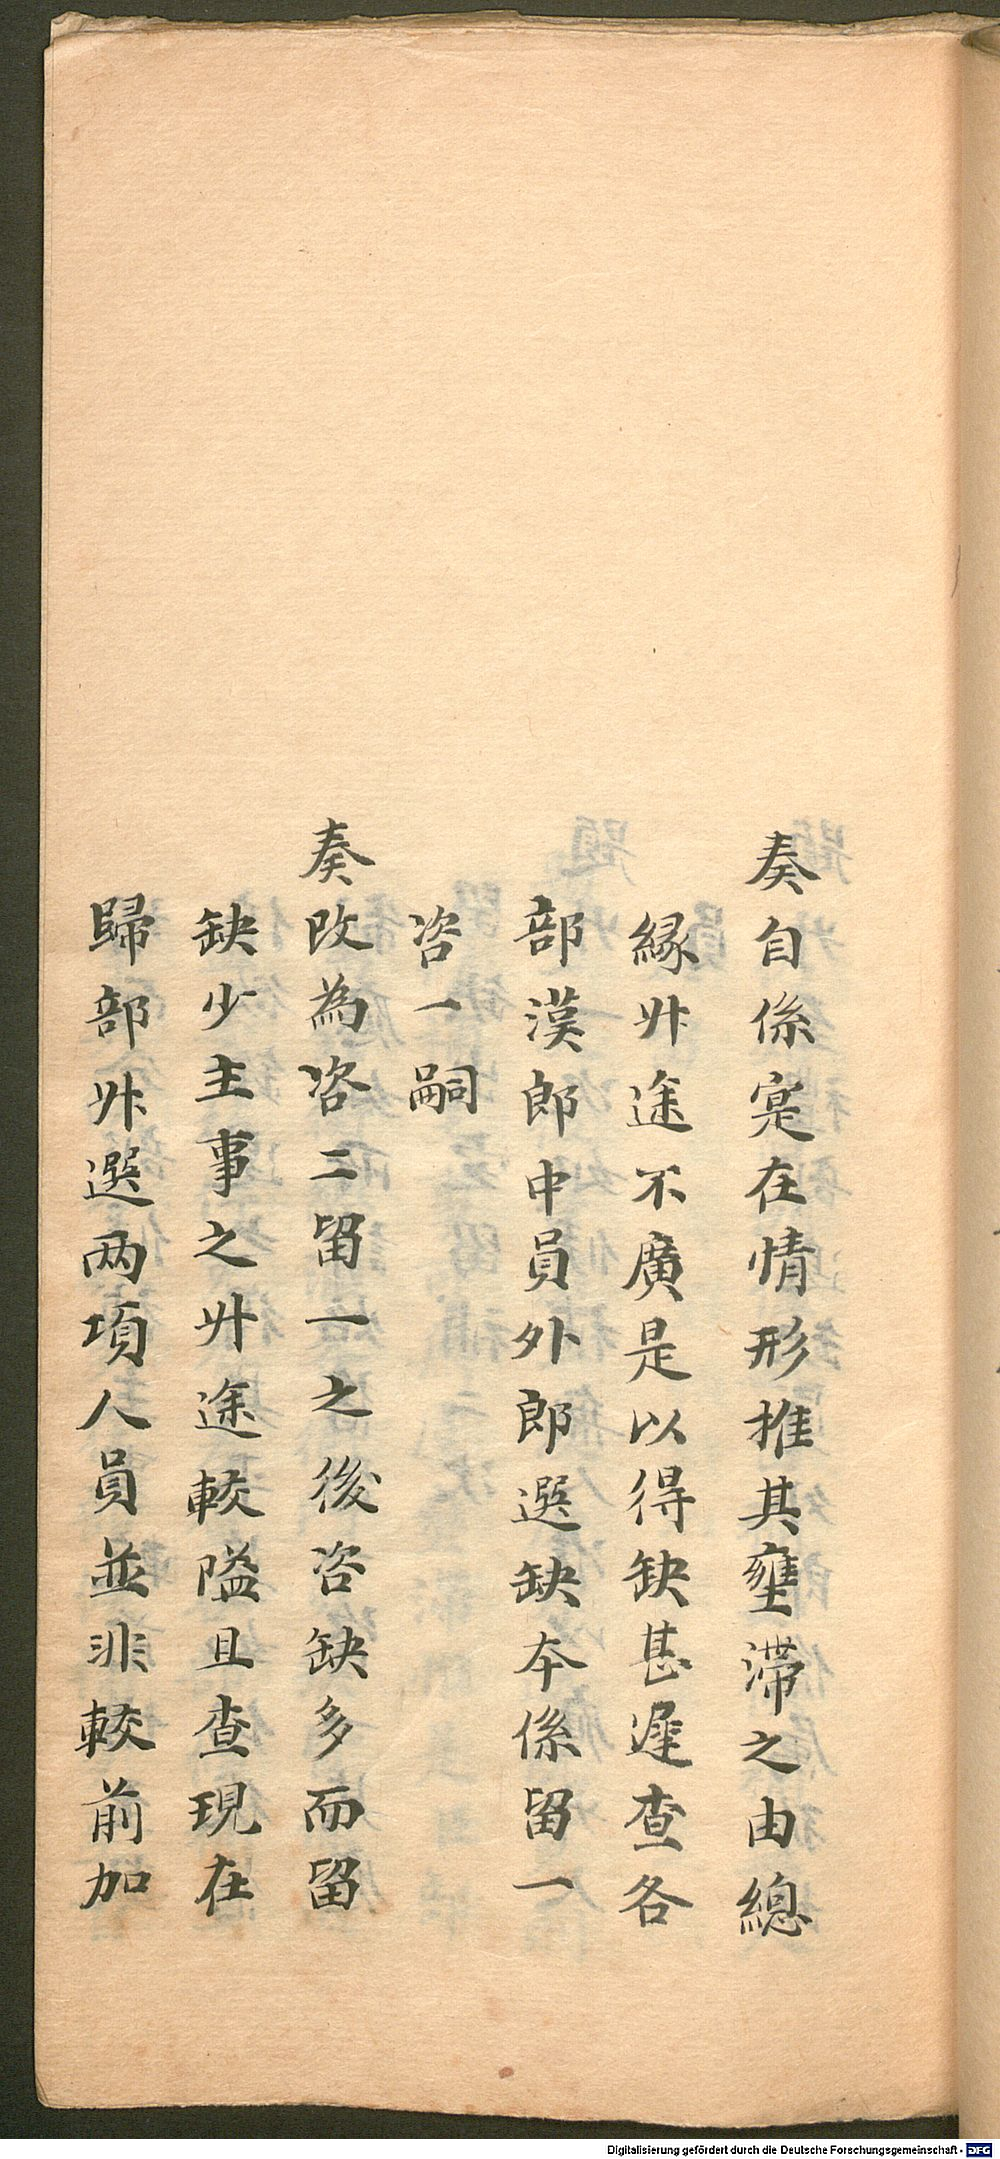 奏自係寔在情形推其壅滯之由總
緣陞途不廣是以得缺甚遲查各
部漢郎中員外郎選缺本係留一
咨一嗣
奏改為咨二留一之後咨缺多而留
缺少主事之陞途較隘且查現在
歸部陞選两項人員並非較前加
Digitalisierung gefördert durch die Deutsche Forschungsgemeinschaft - DFG